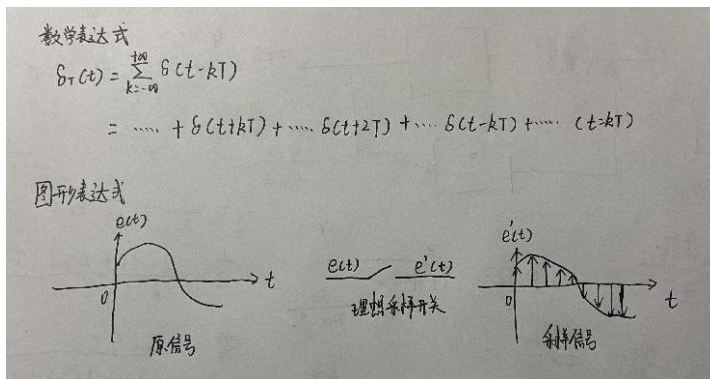 数学表达式
δT(t) = ∑ k=-∞ +∞ δ(t-kT)
= ..... + δ(t+kT) + .... δ(t+2T) + .... δ(t-kT) + ..... (t=kT)
图形表达式
e(t)
0
t
原信号
e(t) e'(t)
理想采样开关
e'(t)
0
t
采样信号